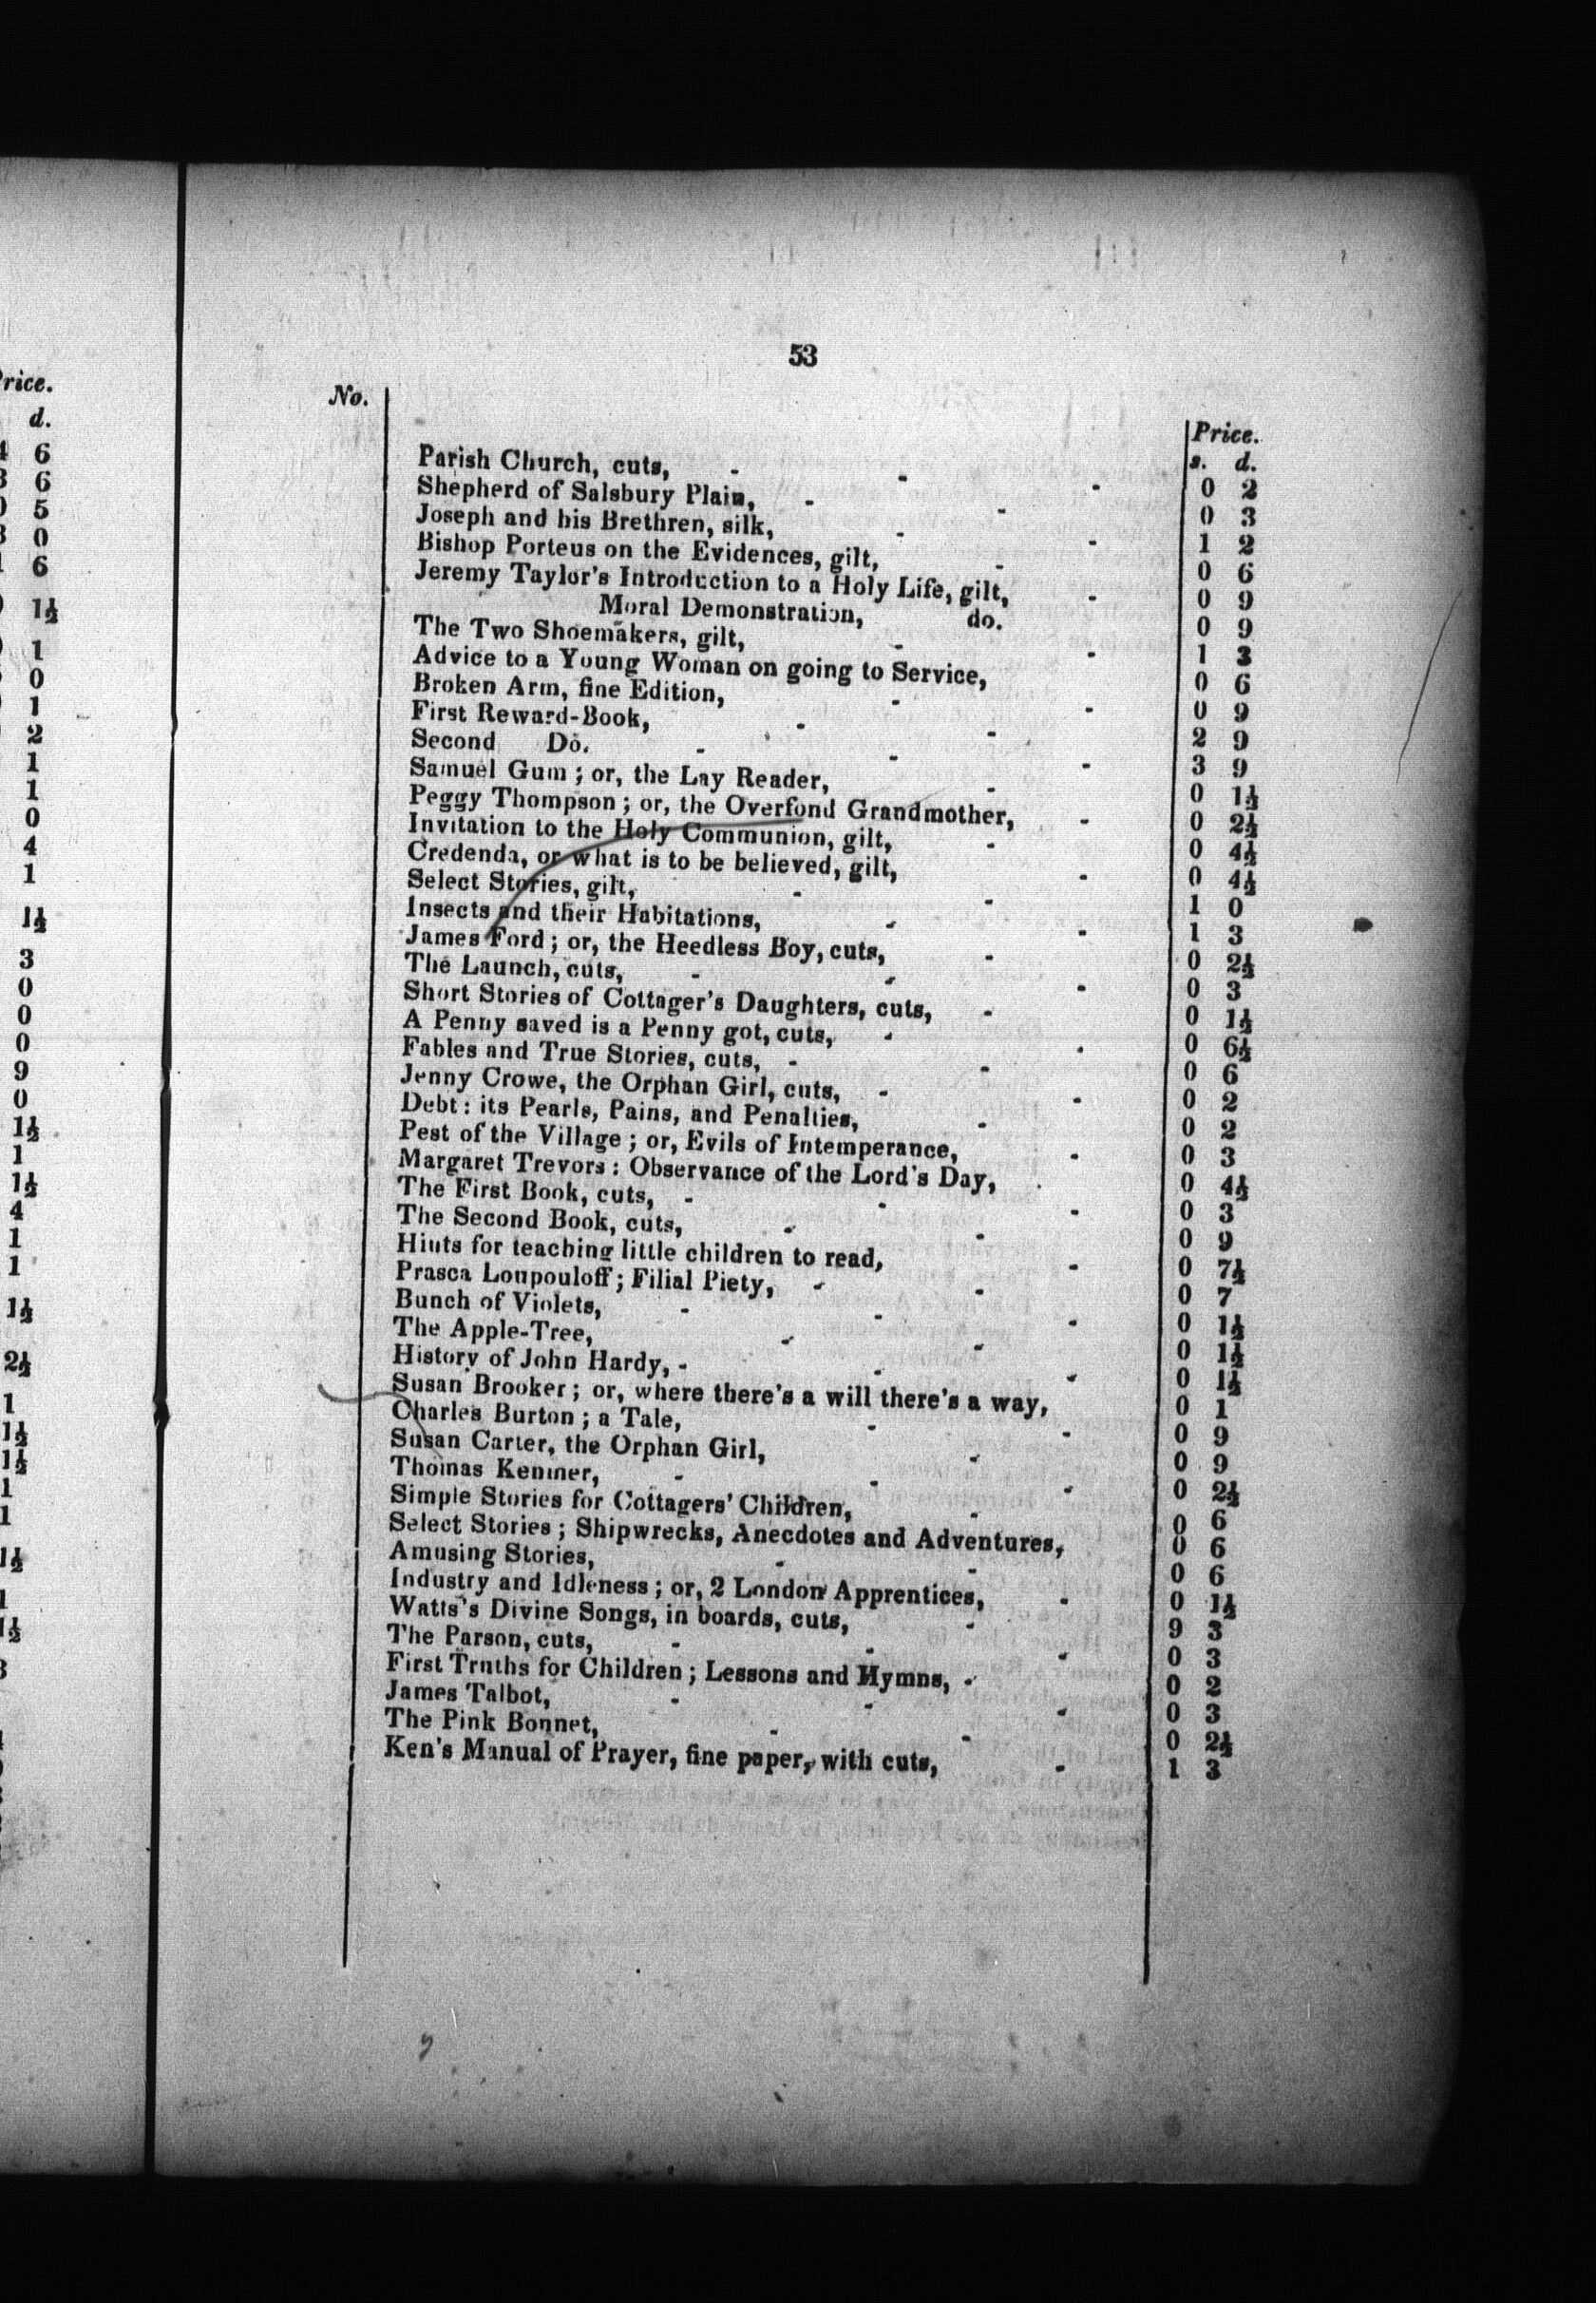 Price.
d.
6
6
5
0
6
1½
1
0
1
2
1
1
0
4
1
1½
3
0
0
0
9
0
1½
1
1½
4
1
1
1½
2½
1
1½
1½
1
1
1½
1
1½
3
53
No.
Price.
s. d.
Parish Church, cuts, - - - 0 2
Shepherd of Salsbury Plain, - - 0 3
Joseph and his Brethren, silk, - - 1 2
Bishop Porteus on the Evidences, gilt, - 0 6
Jeremy Taylor's Introduction to a Holy Life, gilt, - 0 9
Moral Demonstration, do. 0 9
The Two Shoemakers, gilt, - - 1 3
Advice to a Young Woman on going to Service, 0 6
Broken Arm, fine Edition, - - 0 9
First Reward-Book, - - 2 9
Second Do. - - - 3 9
Samuel Gum; or, the Lay Reader, - 0 1½
Peggy Thompson; or, the Overfond Grandmother, - 0 2½
Invitation to the Holy Communion, gilt, - 0 4½
Credenda, or what is to be believed, gilt, - 0 4½
Select Stories, gilt, - - 1 0
Insects and their Habitations, - - 1 3
James Ford; or, the Heedless Boy, cuts, - 0 2½
The Launch, cuts, - - - 0 3
Short Stories of Cottager's Daughters, cuts, - 0 1½
A Penny saved is a Penny got, cuts, - - 0 6½
Fables and True Stories, cuts, - - 0 6
Jenny Crowe, the Orphan Girl, cuts, - - 0 2
Debt: its Pearls, Pains, and Penalties, - 0 2
Pest of the Village; or, Evils of Intemperance, - 0 3
Margaret Trevors: Observance of the Lord's Day, . 0 4½
The First Book, cuts, - - - 0 3
The Second Book, cuts, - - 0 9
Hints for teaching little children to read, - 0 7½
Prasca Loupouloff; Filial Piety, - - 0 7
Bunch of Violets, - - - 0 1½
The Apple-Tree, - - 0 1½
History of John Hardy, - - - 0 1½
Susan Brooker; or, where there's a will there's a way, 0 1
Charles Burton; a Tale, - - 0 9
Susan Carter, the Orphan Girl, - 0 9
Thomas Kenmer, - - - 0 2½
Simple Stories for Cottagers' Children, - 0 6
Select Stories; Shipwrecks, Anecdotes and Adventures, 0 6
Amusing Stories, - - 0 6
Industry and Idleness; or, 2 London Apprentices, - 0 1½
Watts's Divine Songs, in boards, cuts, - 9 3
The Parson, cuts, - - - 0 3
First Truths for Children; Lessons and Hymns, - 0 2
James Talbot, - - - 0 3
The Pink Bonnet, - - 0 2½
Ken's Manual of Prayer, fine paper, with cuts, - 1 3